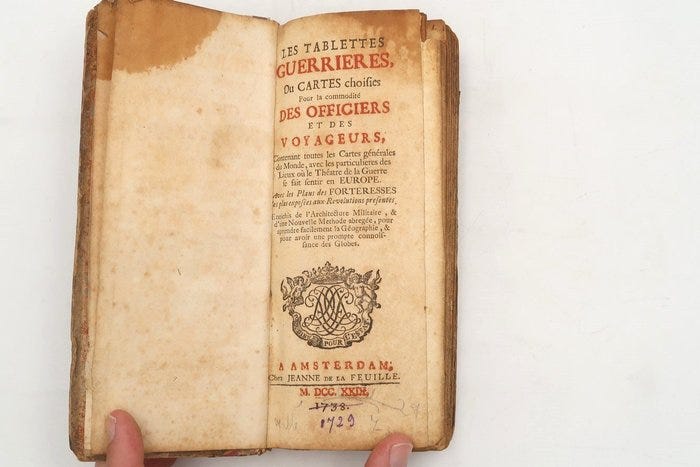 LES TABLETTES
GUERRIERES,
Ou CARTES choisies
Pour la commodité
DES OFFICIERS
ET DES
VOYAGEURS,
Contenant toutes les Cartes générales
du Monde, avec les particulieres des
Lieux où le Théatre de la Guerre
se fait sentir en EUROPE.
Avec les Plans des FORTERESSES
les plus exposées aux Revolutions presentes,
Enrichis de l'Architecture Militaire, &
d'une Nouvelle Methode abregée, pour
aprendre facilement la Géographie, &
pour avoir une prompte connois-
sance des Globes.
POUR
A AMSTERDAM;
Chez JEANNE DE LA FEUILLE.
M. DCC. XXIX,
1738.
1729